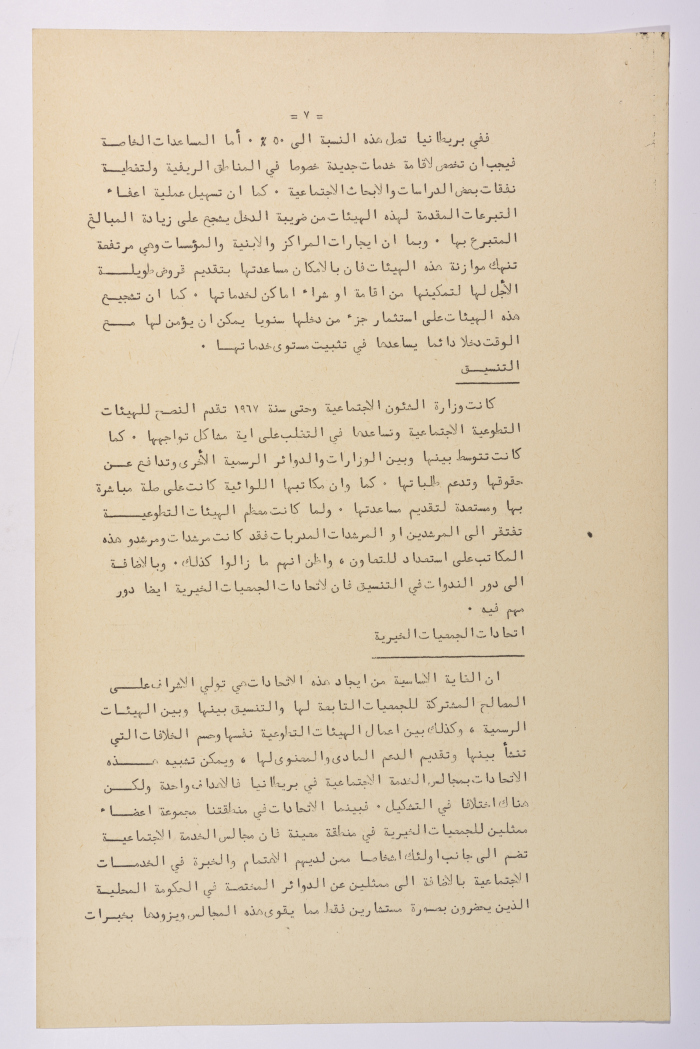 = ٧ =
ففي بريطانيا تصل هذه النسبة الى ٥٠ ٪ ٠ أما المساعدات الخاصة
فيجب ان تخصص لاقامة خدمات جديدة خصوصا في المناطق الريفية ولتغطية
نفقات بعض الدراسات والابحاث الاجتماعية ٠ كما ان تسهيل عملية اعفاء
التبرعات المقدمة لهذه الهيئات من ضريبة الدخل يشجع على زيادة المبالغ
المتبرع بها ٠ وبما ان ايجارات المراكز والابنية والمؤسات وهي مرتفعة
تنهك موازنة هذه الهيئات فان بالامكان مساعدتها بتقديم قروض طويلـــة
الأجل لها لتمكينها من اقامة او شراء اماكن لخدماتها ٠ كما ان تشجيع
هذه الهيئات على استثمار جزء من دخلها سنويا يمكن ان يؤمن لها مــع
الوقت دخلا دائما يساعدها في تثبيت مستوى خدماتهـا ٠
التنسيــق
كانت وزارة الشئون الاجتماعية وحتى سنة ١٩٦٧ تقدم النصح للهيئات
التطوعية الاجتماعية وتساعدها في التغلب على اية مشاكل تواجهها ٠ كما
كانت تتوسط بينها وبين الوزارات والدوائر الرسمية الأخرى وتدافع عــن
حقوقها وتدعم طلباتها ٠ كما وان مكاتبها اللوائية كانت على صلة مباشرة
بها ومستعدة لتقديم مساعدتها ٠ ولما كانت معظم الهيئات التطوعيـــــة
تفتقر الى المرشدين او المرشدات المدربات فقد كانت مرشدات ومرشدو هذه
المكاتب على استعداد للتعاون ، واظن انهم ما زالوا كذلك ٠ وبالاضافـة
الى دور الندوات في التنسيق فان لاتحادات الجمعيات الخيرية ايضا دور
مهم فيه ٠
اتحادات الجمعيات الخيرية
ان الغاية الاساسية من ايجاد هذه الاتحادات هي تولي الاشراف علــى
المصالح المشتركة للجمعيات التابعة لها والتنسيق بينها وبين الهيئـات
الرسمية ، وكذلك بين اعمال الهيئات التطوعية نفسها وحسم الخلافات التي
تنشأ بينها وتقديم الدعم المادى والمعنوى لها ، ويمكن تشبيه هــــذه
الاتحادات بمجالس الخدمة الاجتماعية في بريطانيا فالاهداف واحدة ولكــن
هناك اختلافا في التشكيل ٠ فبينما الاتحادات في منطقتنا مجموعة اعضــاء
ممثلين للجمعيات الخيرية في منطقة معينة فان مجالس الخدمة الاجتماعيــة
تضم الى جانب اولئك اشخاصا ممن لديهم الاهتمام والخبرة في الخدمــات
الاجتماعية بالاضافة الى ممثلين عن الدوائر المختصة في الحكومة المحلية
الذين يحضرون بصورة مستشارين فقط مما يقوى هذه المجالس ويزودها بخبرات